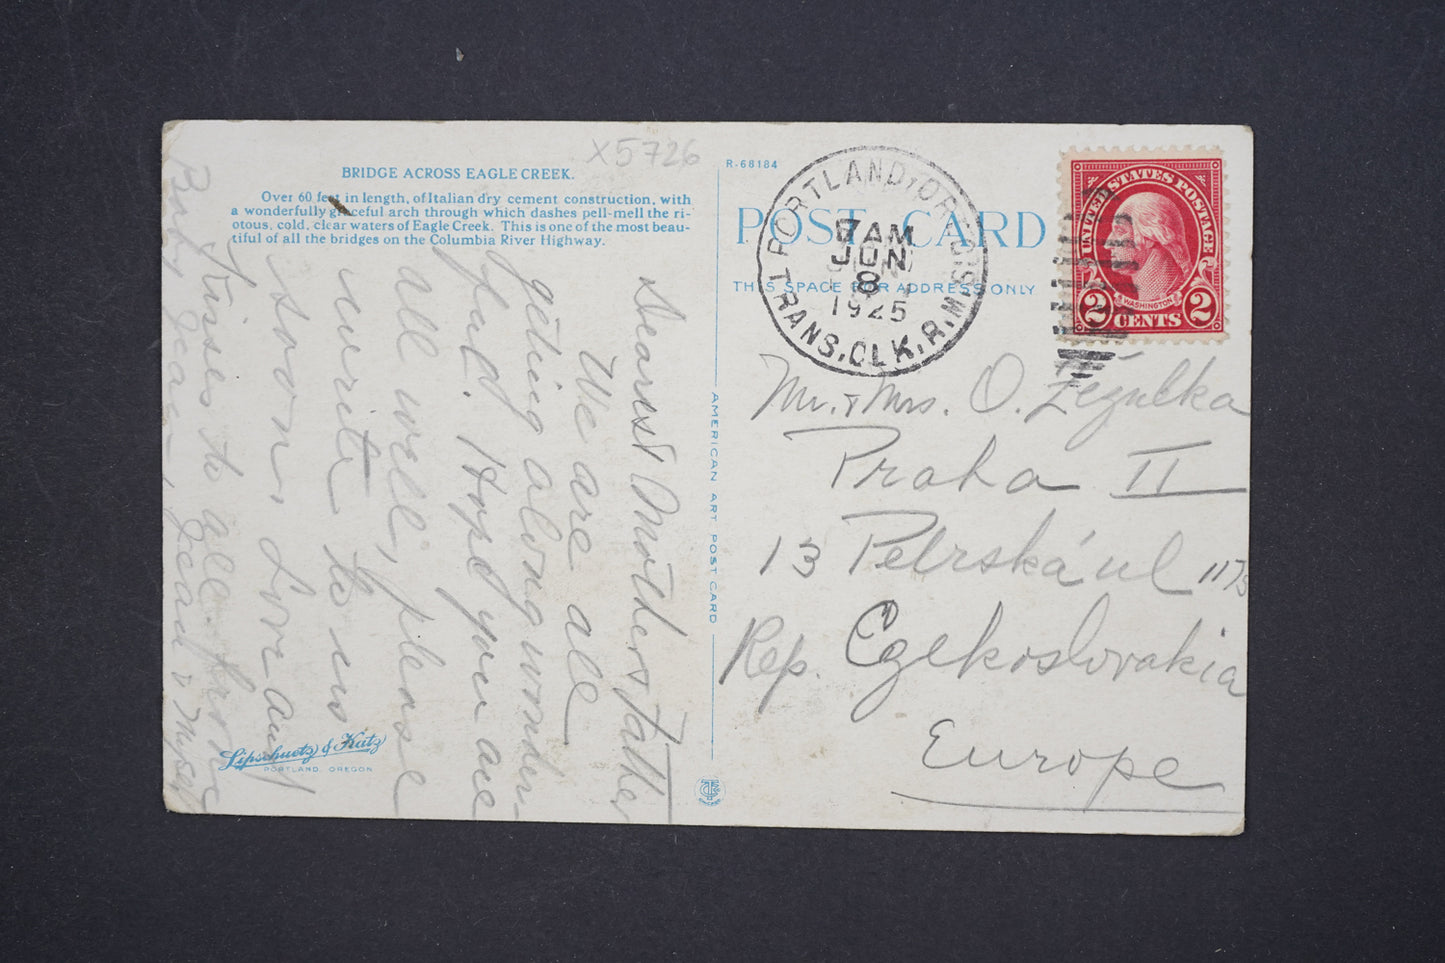 X5726
BRIDGE ACROSS EAGLE CREEK.
Over 60 feet in length, of Italian dry cement construction, with
a wonderfully graceful arch through which dashes pell-mell the ri-
otous, cold, clear waters of Eagle Creek. This is one of the most beau-
tiful of all the bridges on the Columbia River Highway.
Dearest Mother & Father
We are all
geting along wonder
full. Hope you are
all well, please
write to us
soon. Love and
Kisses to all. from
Lipschuetz & Katz
PORTLAND, OREGON
AMERICAN ART POST CARD
R-68184
POST CARD
THIS SPACE FOR ADDRESS ONLY
PORTLAND, OR.
7 AM
JUN
8
1925
TRANS. CLK. R.M.S.
UNITED STATES POSTAGE
WASHINGTON
2 CENTS 2
Mr. & Mrs. O. Zezulka
Praha II
13 Petrská ul 1173
Rep. Czekoslovakia
Europe